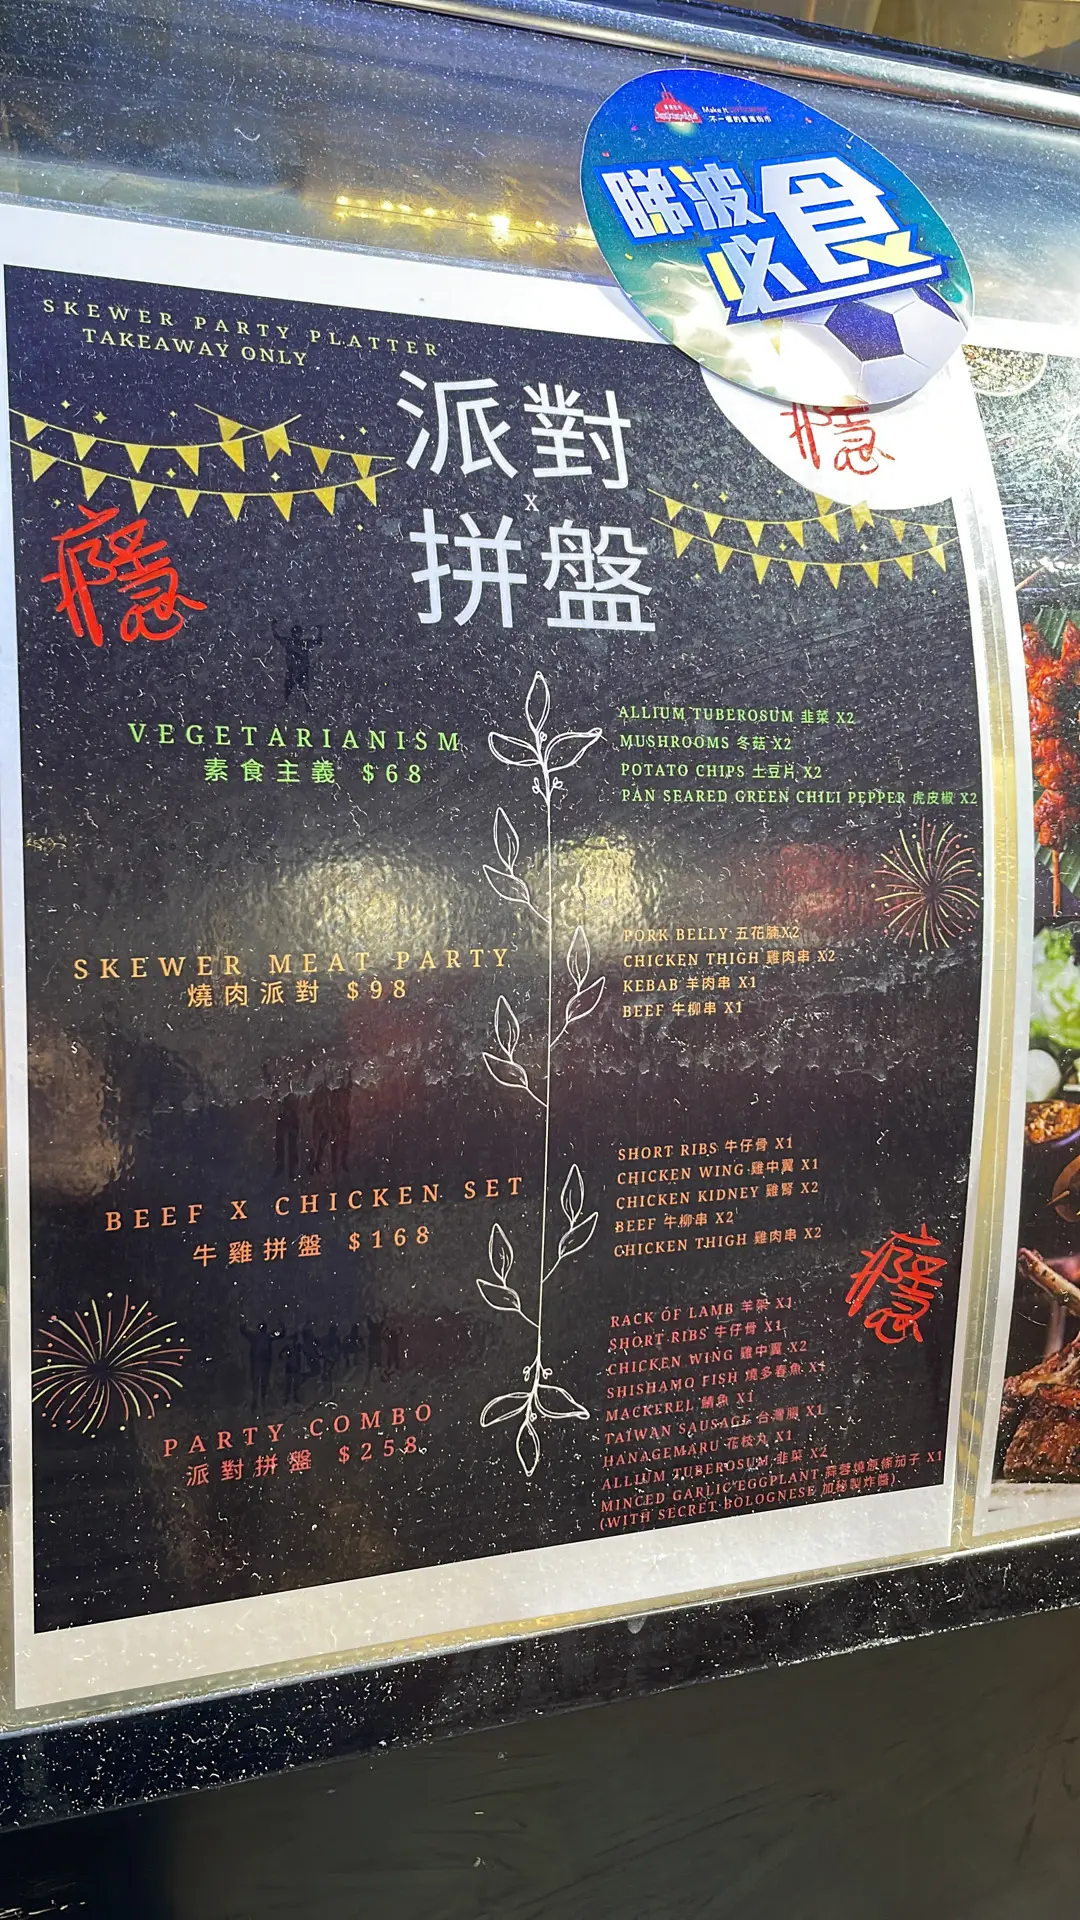 Make It
不一樣的
睇波
必食
SKEWER PARTY PLATTER
TAKEAWAY ONLY
派對
X
拼盤
癮
癮
VEGETARIANISM
素食主義 $68
ALLIUM TUBEROSUM 韭菜 X2
MUSHROOMS 冬菇 X2
POTATO CHIPS 土豆片 X2
PAN SEARED GREEN CHILI PEPPER 虎皮椒 X2
SKEWER MEAT PARTY
燒肉派對 $98
PORK BELLY 五花腩X2
CHICKEN THIGH 雞肉串 X2
KEBAB 羊肉串 X1
BEEF 牛柳串 X1
BEEF X CHICKEN SET
牛雞拼盤 $168
SHORT RIBS 牛仔骨 X1
CHICKEN WING 雞中翼 X1
CHICKEN KIDNEY 雞腎 X2
BEEF 牛柳串 X2
CHICKEN THIGH 雞肉串 X2
癮
PARTY COMBO
派對拼盤 $258
RACK OF LAMB 羊架 X1
SHORT RIBS 牛仔骨 X1
CHICKEN WING 雞中翼 X2
SHISHAMO FISH 燒多春魚 X1
MACKEREL 鯖魚 X1
TAIWAN SAUSAGE 台灣腸 X1
HANAGEMARU 花枝丸 X1
ALLIUM TUBEROSUM 韭菜 X2
MINCED GARLIC EGGPLANT 蒜蓉燒原條茄子 X1
(WITH SECRET BOLOGNESE 加秘製炸醬)